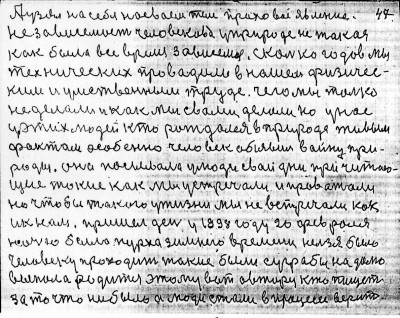 47.
на себя такие явления.
независемость человека у природе не такая
как была все время зависемая. сколко годов мы
технических проводили в нашем физичес-
ким и умственными труде. чего мы только
не делали и как мы сваими делами но у нас
у этих людей кто рождался в природе живым
фактам особенно человек обявил вайну при-
роди. она посилала у люди сваи дни при читаю-
щие такие как мы устречали и проважали
но чтобы такого у жизни мы не встречали как
их нам. пришел ден у 1938 году 20 февроля
ночю была пурха зимнего времени нелзя было
человеку проходит такие были суграбы надо было
родится этому вот автору кто пишет
за то что не было а люди стали в процеси верит